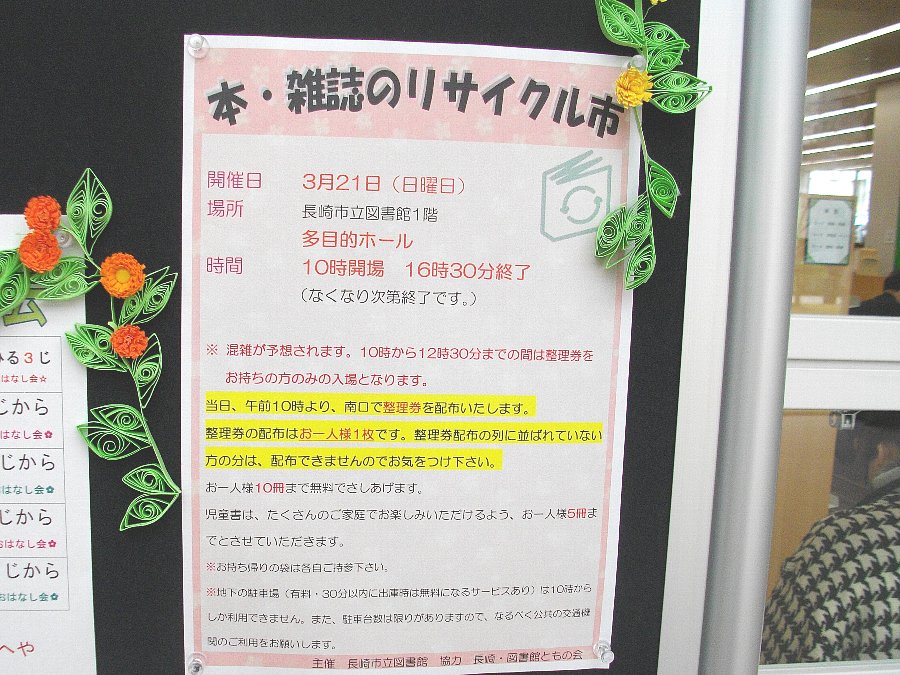 本・雑誌のリサイクル市
開催日 3月21日（日曜日）
場所 長崎市立図書館1階
多目的ホール
時間 10時開場 16時30分終了
（なくなり次第終了です。）
※ 混雑が予想されます。10時から12時30分までの間は整理券を
お持ちの方のみの入場となります。
当日、午前10時より、南口で整理券を配布いたします。
整理券の配布はお一人様1枚です。整理券配布の列に並ばれていない
方の分は、配布できませんのでお気をつけ下さい。
お一人様10冊まで無料でさしあげます。
児童書は、たくさんのご家庭でお楽しみいただけるよう、お一人様5冊ま
でとさせていただきます。
※お持ち帰りの袋は各自ご持参下さい。
※地下の駐車場（有料・30分以内に出庫時は無料になるサービスあり）は10時から
しか利用できません。また、駐車台数は限りがありますので、なるべく公共の交通機
関のご利用をお願いします。
主催 長崎市立図書館 協力 長崎・図書館ともの会
ひる3じ
おはなし会☆
じから
おはなし会✿
じから
おはなし会✿
じから
おはなし会✿
じから
おはなし会✿
へや